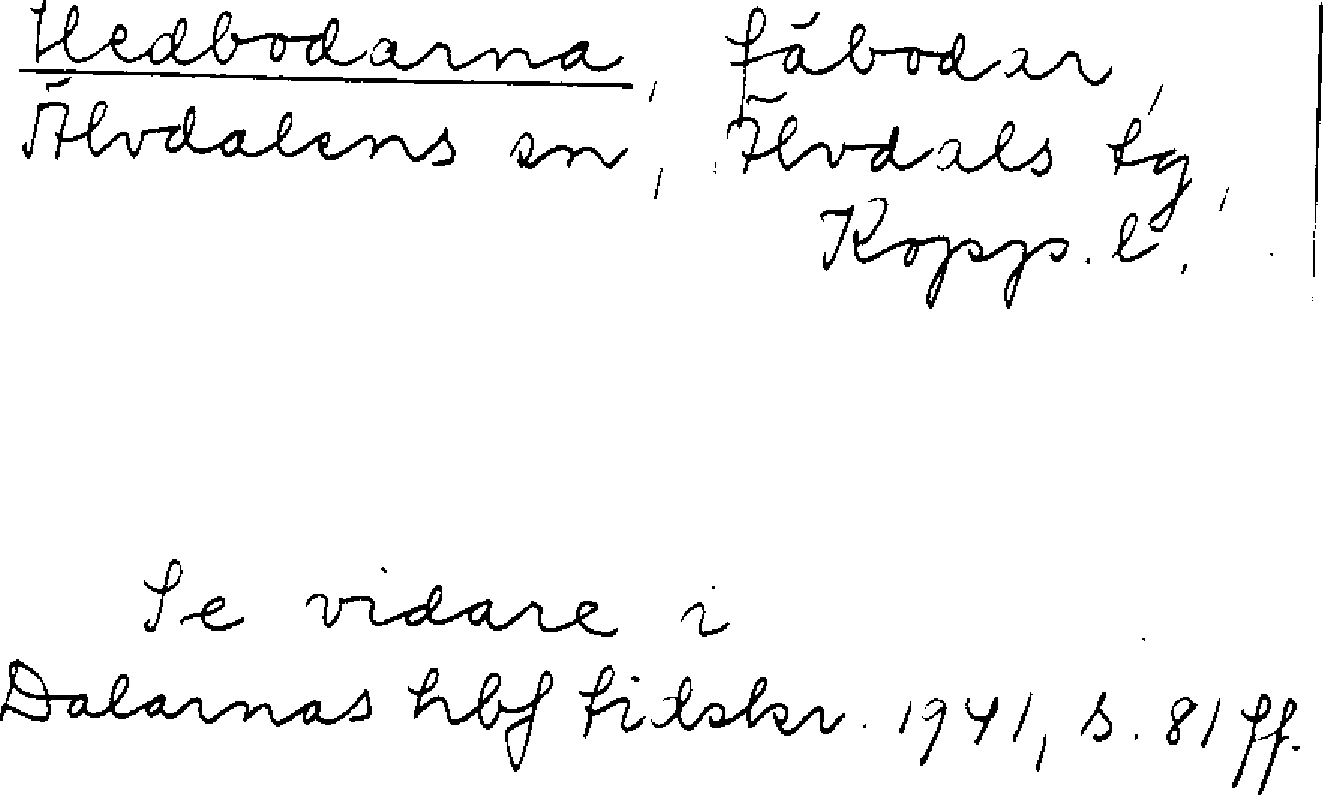 Hedbodarna, fäbodar,
Älvdalens sn, Älvdals tg,
Kopp. l.
Se vidare i
Dalarnas hbf tidskr. 1941, s. 81 ff.